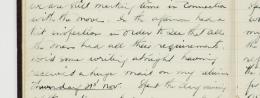 we are still marking time in connection
with the move. In the afternoon had a
kit inspection in order to see that all
the men had all their requirements.
some writing at night having
received a huge mail on my
Thursday Nov. Spent the day